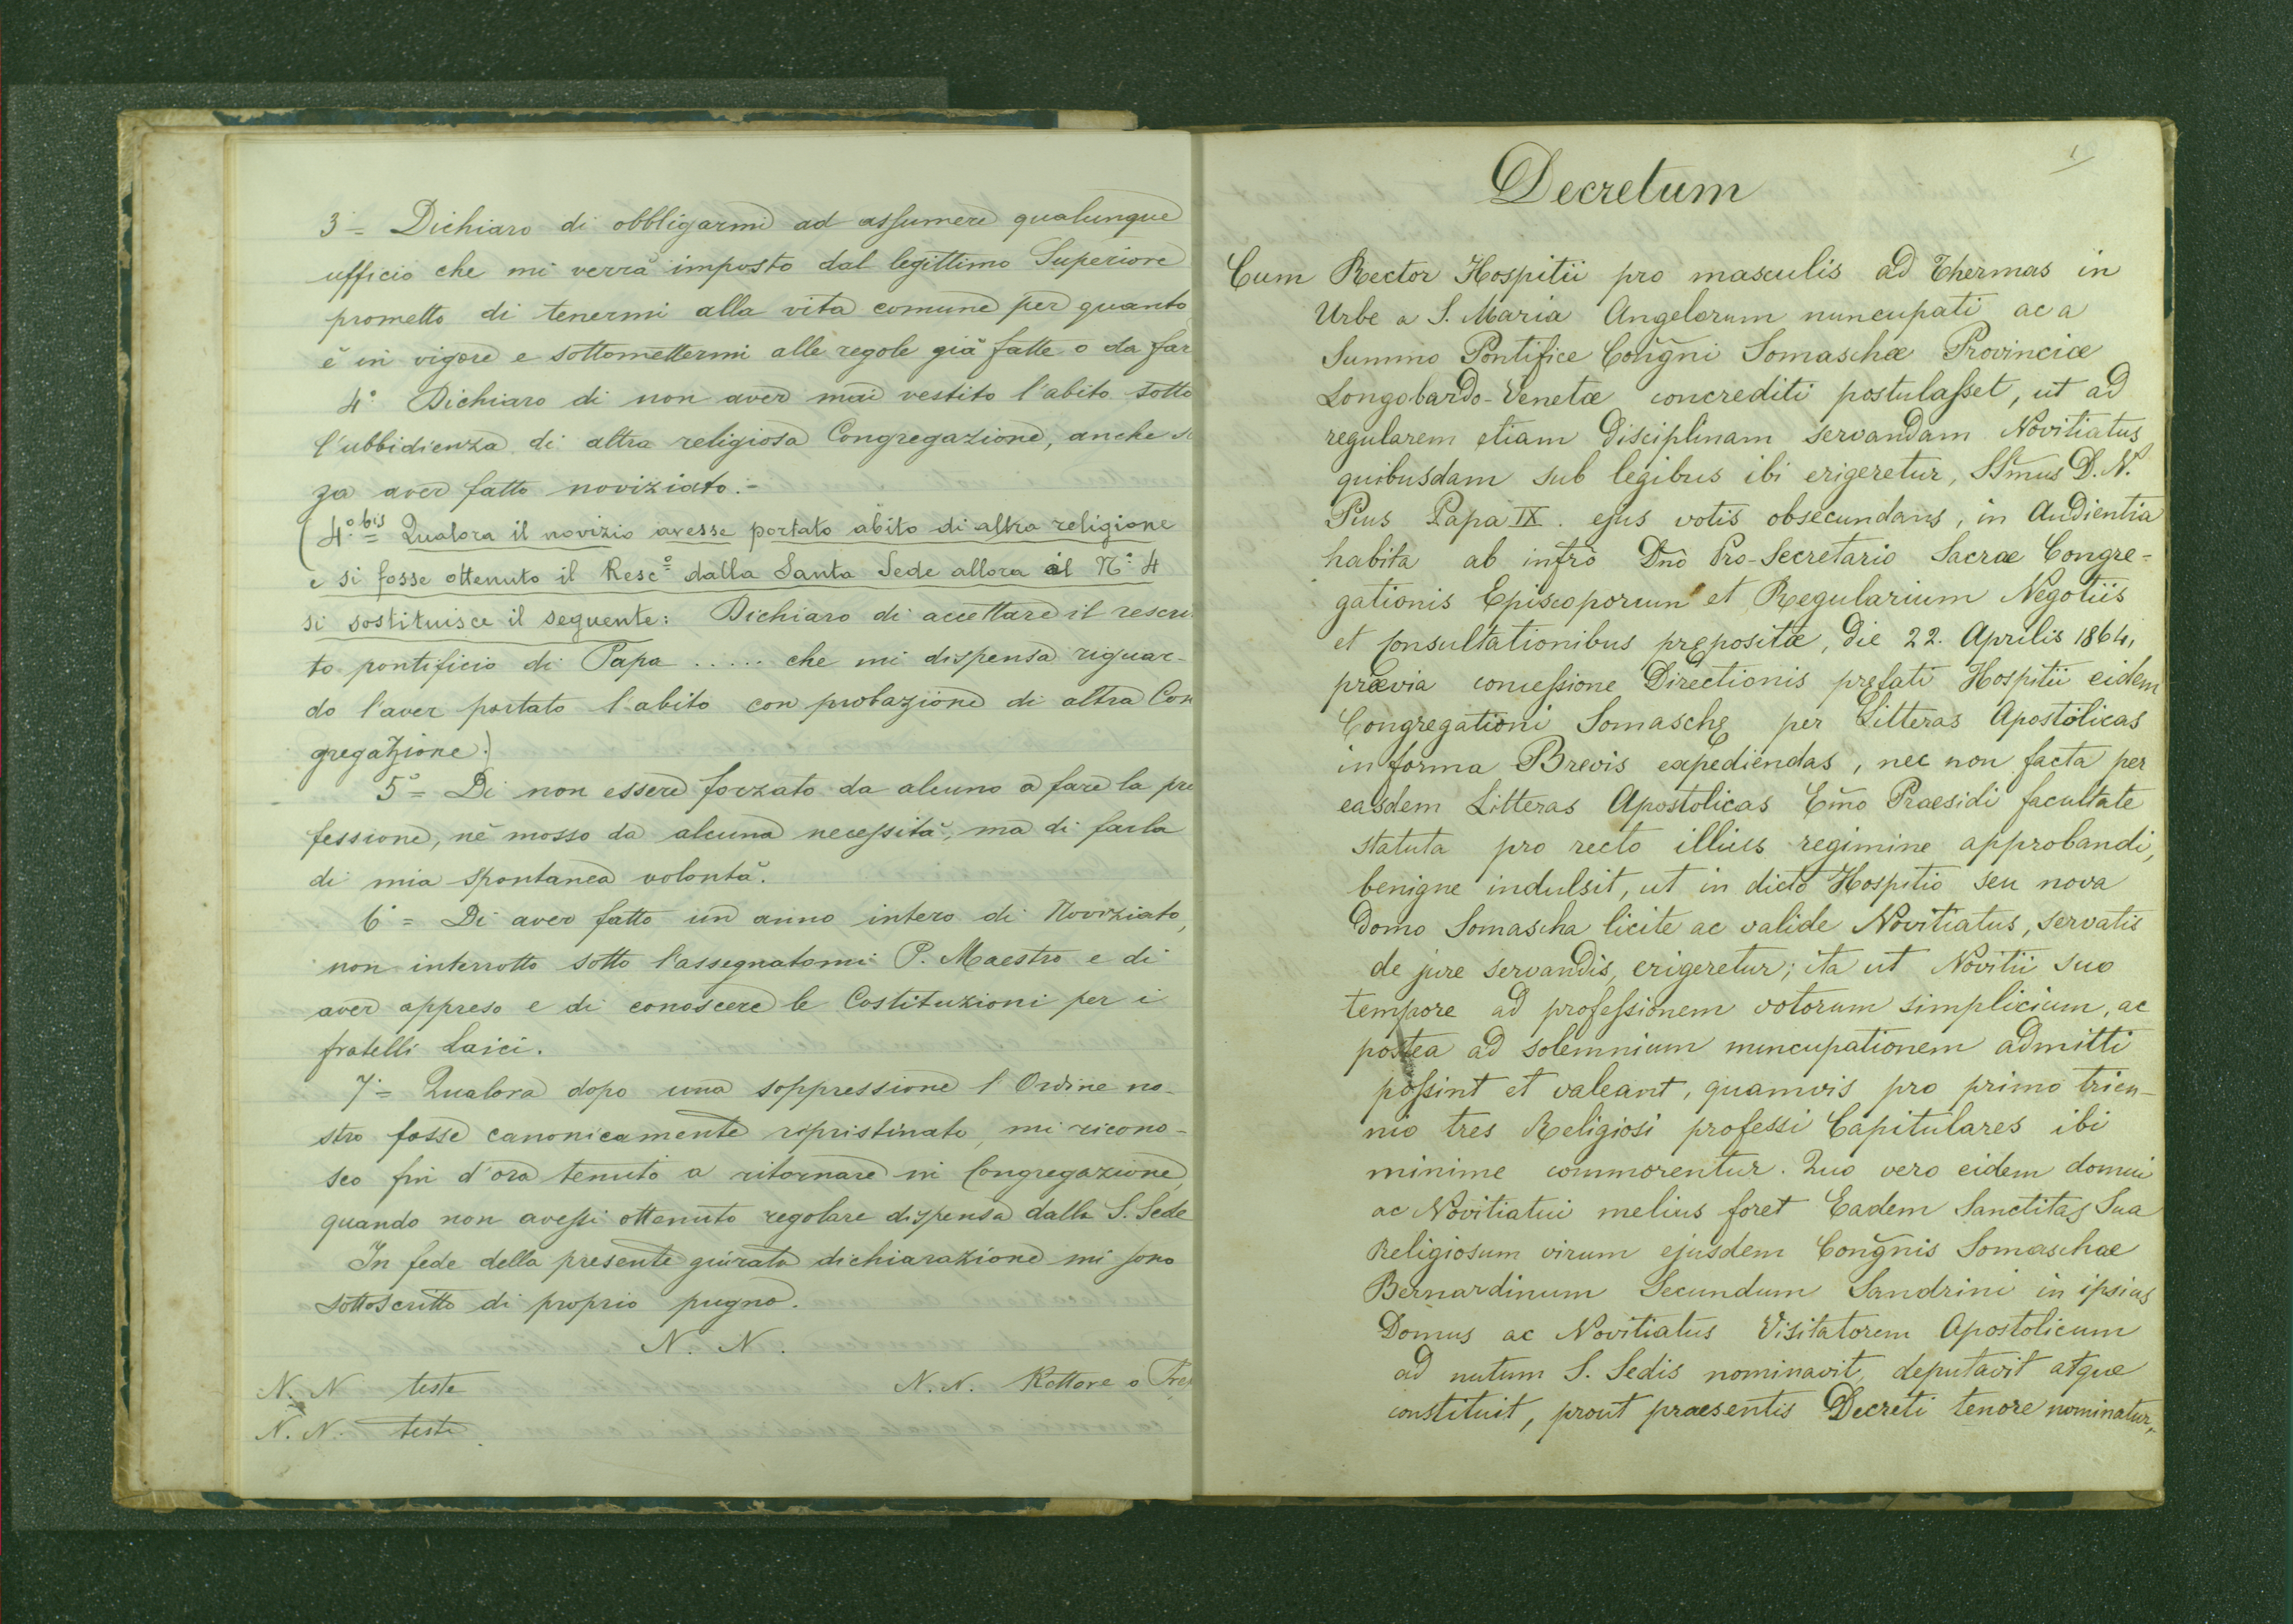 3º = Dichiaro di obbligarmi ad assumere qualunque
ufficio che mi verrà imposto dal legittimo Superiore
prometto di tenermi alla vita comune per quanto
è in vigore e sottomettermi alle regole già fatte o da far
4º Dichiaro di non aver mai vestito l'abito sotto
l'ubbidienza di altra religiosa Congregazione, anche
za aver fatto noviziato.-
(4.º bis = Qualora il novizio avesse portato abito di altra religione
e si fosse ottenuto il Resc.º dalla Santa Sede allora al Nº 4
si sostituisce il seguente: Dichiaro di accettare il rescri
to pontificio di Papa ..... che mi dispensa riguar-
do l'aver portato l'abito con probazione di altra Con
gregazione.)
5º = Di non essere forzato da alcuno a fare la pro
fessione, nè mosso da alcuna necessità, ma di farla
di mia spontanea volontà.
6º = Di aver fatto un anno intero di Noviziato,
non interrotto sotto l'assegnatomi P. Maestro e di
aver appreso e di conoscere le Costituzioni per i
fratelli Laici.
7º = Qualora dopo una soppressione l'Ordine no-
stro fosse canonicamente ripristinato, mi ricono-
sco fin d'ora tenuto a ritornare in Congregazione,
quando non avessi ottenuto regolare dispensa dalla S. Sede
In fede della presente giurata dichiarazione mi sono
sottoscritto di proprio pugno.
N. N.
N. N. teste N. N. Rettore o Prep
N. N. teste
1
Decretum
Cum Rector Hospitii pro masculis ad Thermas in
Urbe a S. Maria Angelorum nuncupati ac a
Summo Pontifice Congñi Somaschæ Provinciæ
Longobardo-Venetæ concrediti postulasset, ut ad
regularem etiam disciplinam servandam Novitiatus
quibusdam sub legibus ibi erigeretur, SSmus D. N.
Pius Papa IX. ejus votis obsecundans, in Audientia
habita ab infro Dno Pro-Secretario Sacræ Congre-
gationis Episcoporum et Regularium Negotiis
et Consultationibus præpositæ, die 22. Aprilis 1864,
prævia concessione Directionis prefati Hospitii eidem
Congregationi Somaschę per Litteras Apostolicas
in forma Brevis expediendas, nec non facta per
easdem Litteras Apostolicas Emo Praesidi facultate
statuta pro recto illius regimine approbandi,
benigne indulsit, ut in dicto Hospitio seu nova
Domo Somascha licite ac valide Novitiatus, servatis
de jure servandis, erigeretur; ita ut Novitii suo
tempore ad professionem votorum simplicium, ac
postea ad solemnium nuncupationem admitti
possint et valeant, quamvis pro primo trien-
nio tres Religiosi professi Capitulares ibi
minime commorentur. Quo vero eidem domui
ac Novitiatui melius foret Eadem Sanctitas Sua
Religiosum virum ejusdem Congñis Somaschae
Bernardinum Secundum Sandrini in ipsius
Domus ac Novitiatus Visitatorem Apostolicum
ad nutum S. Sedis nominavit, deputavit atque
constituit, prout praesentis Decreti tenore nominatur,